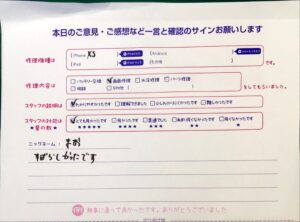 本日のご意見・ご感想など一言と確認のサインお願いします
修理機種は
iPhone XS
Android
iPad
その他
修理内容は
バッテリー交換 画面修理 水没修理 パーツ修理
相談 その他
をしてもらいました。
スタッフの説明は
わかりやすかったです 理解できました 少しわかりにくかったです 難しかったです
スタッフの対応は
★の数は
とても良かったです 良かったです 普通でした あまり良くなかったです 良くなかったです
★★★★★ ★★★★ ★★★ ★★ ★
ニックネーム:
すばらしかったです
無事に直って良かったです。ありがとうございました。